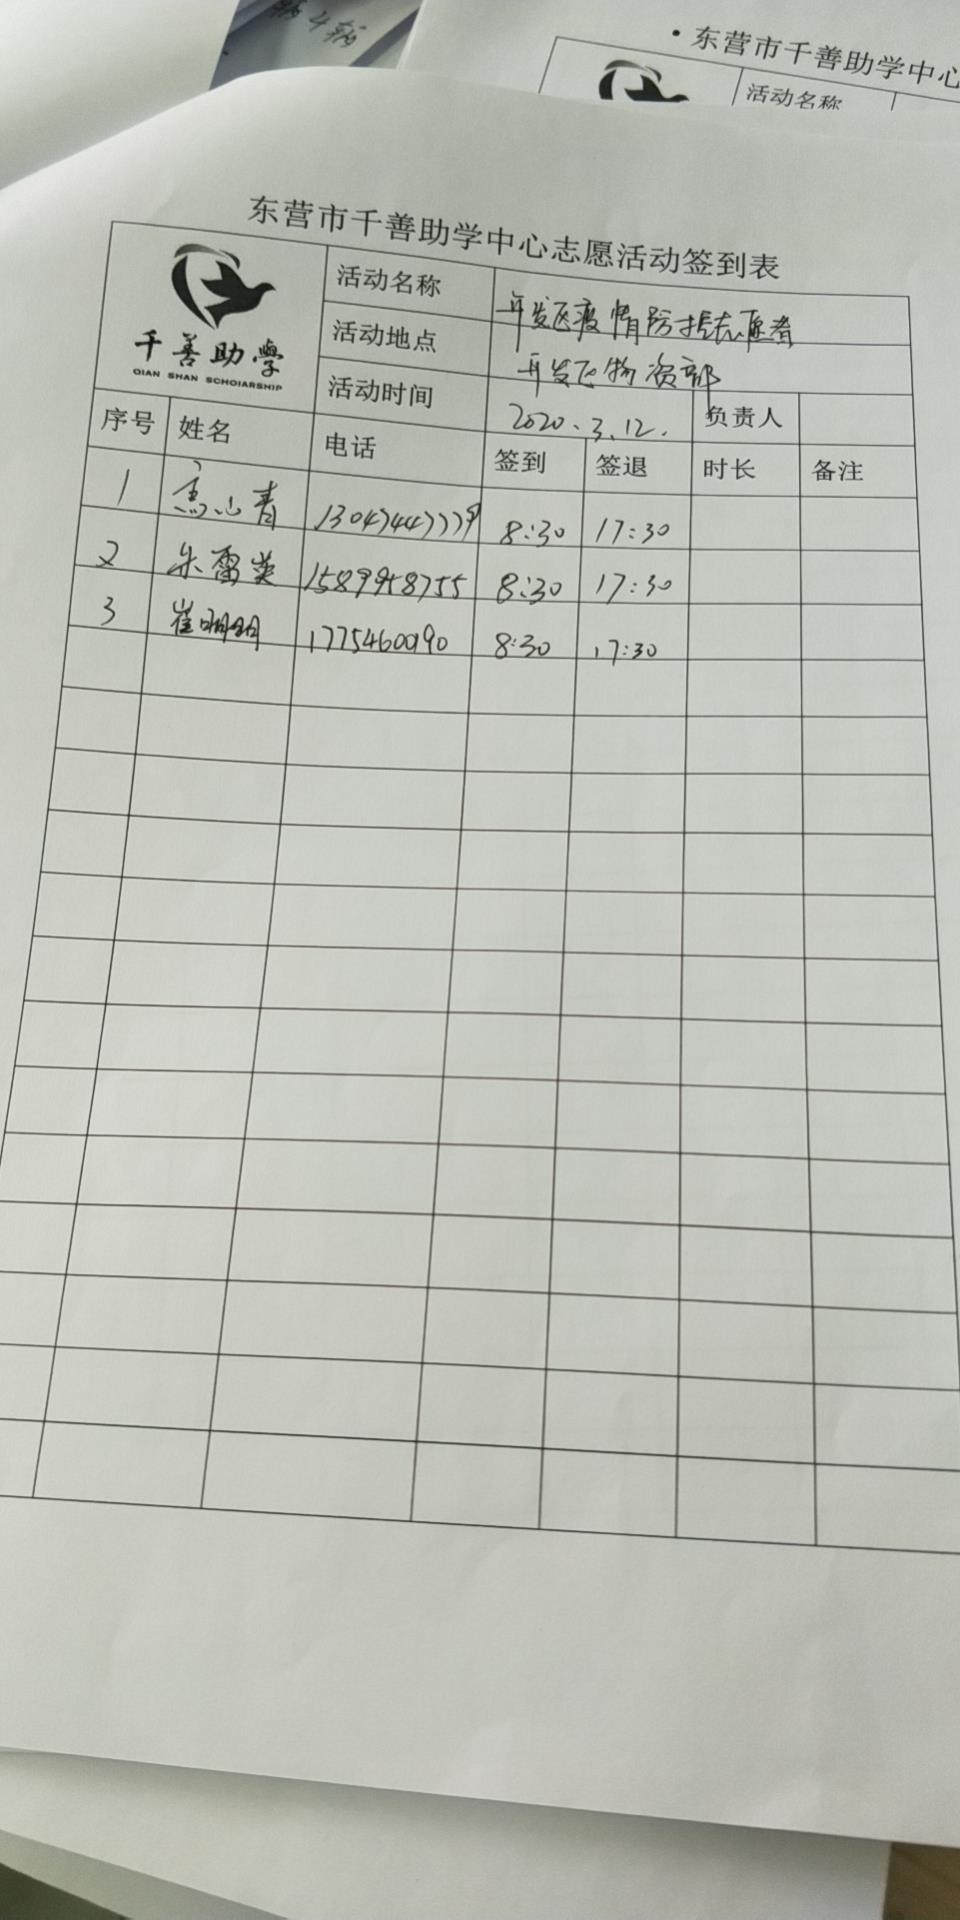 辆4辆
·东营市千善助学中心
活动名称
东营市千善助学中心志愿活动签到表
千善助學
QIAN SHAN SCHOIARSHIP
活动名称 开发区疫情防控志愿者
活动地点 开发区物资部
活动时间 2020.3.12. 负责人
序号 姓名 电话 签到 签退 时长 备注
1 8:30 17:30
2 朱雷英 8:30 17:30
3 崔明明 17754600190 8:30 17:30